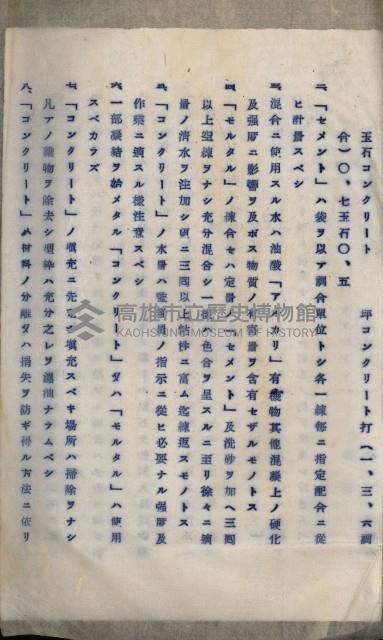 玉石コンクリート　　坪コンクリート打（一、三、六調
合）〇、七玉石〇、五
二、「セメント」ハ袋ヲ以テ調合單位トシ各一練毎ニ指定配合ニ從
ヒ計量スベシ
三、混合ニ使用スル水ハ油酸「アルカリ」有機物其他混凝土ノ硬化
及强度ニ影響ヲ及ボス物質ノ含有セザルモノトス
四、「モルタル」ノ練合セハ定量ノ「セメント」及洗砂ヲ加ヘ三囘
以上空練ヲナシ充分混合シ色合ヲ呈スルニ至リ徐々ニ適
量ノ清水ヲ注加シ更ニ三囘以上粘性ニ富ム迄練返スモノトス
五、「コンクリート」ノ水量ハ員ノ指示ニ從ヒ必要ナル强度及
作業ニ適スル樣注意スベシ
六、一部凝結ヲ始メタル「コンクリート」又ハ「モルタル」ハ使用
スベカラズ
七、「コンクリート」ノ填充ニ先立チ填充スベキ場所ハ掃除ヲナシ
凡テノ雜物ヲ除去シ型枠ハ充分之レヲ濕油ナラムベシ
八、「コンクリート」ハ材料ノ分離又ハ損失ヲ防ギ得ル方法ニ依リ
高雄市立歷史博物館
KAOHSIUNG MUSEUM OF HISTORY